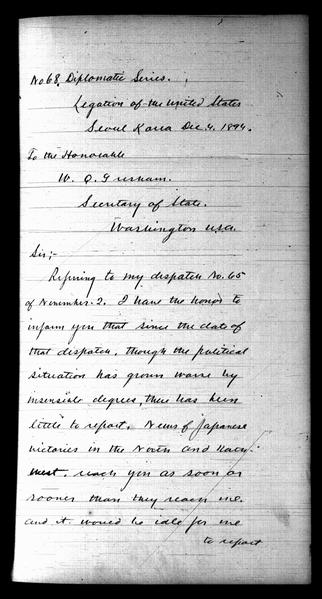 No. 68. Diplomatic Series.
Legation of the United States
Seoul Korea Dec. 4. 1894.
To the Honorable
W. Q. Gresham.
Secretary of State.
Washington U.S.A.
Sir;-
Refering to my dispatch No. 65
of November 2. I have the honor to
inform you that since the date of
that dispatch, though the political
situation has grown worse by
insensible degrees, there has been
little to report. News of Japanese
victories in the North and
reach you as soon or
sooner than they reach me.
and it would be idle for me
to report